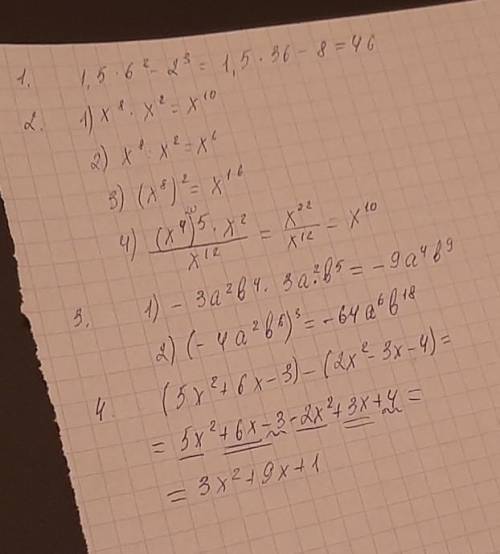 1. 1,5 · 6² - 2³ = 1,5 · 36 - 8 = 46
2. 1) x⁸ · x² = x¹⁰
2) x⁸ : x² = x⁶
3) (x⁸)² = x¹⁶
4) (x⁴)⁵ · x² / x¹² = x²² / x¹² = x¹⁰
3. 1) - 3a²b⁴ · 3a²b⁵ = - 9a⁴b⁹
2) (- 4a²b⁶)³ = - 64a⁶b¹⁸
4. (5x² + 6x - 3) - (2x² - 3x - 4) =
= 5x² + 6x - 3 - 2x² + 3x + 4 =
= 3x² + 9x + 1